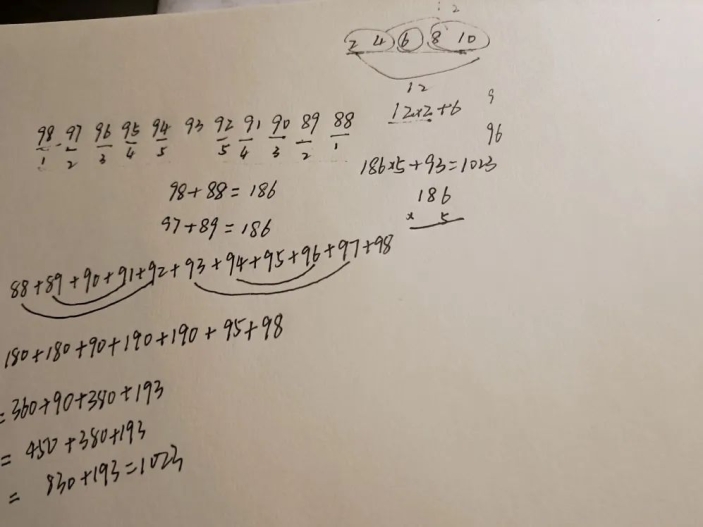 2 4 6 8 10
12
12×2+6
98 97 96 95 94 93 92 91 90 89 88
1 2 3 4 5 5 4 3 2 1
96
186×5+93=1023
98+88=186
186
× 5
97+89=186
88+89+90+91+92+93+94+95+96+97+98
180+180+90+190+190+95+98
=360+90+380+193
=450+380+193
= 830+193=1023